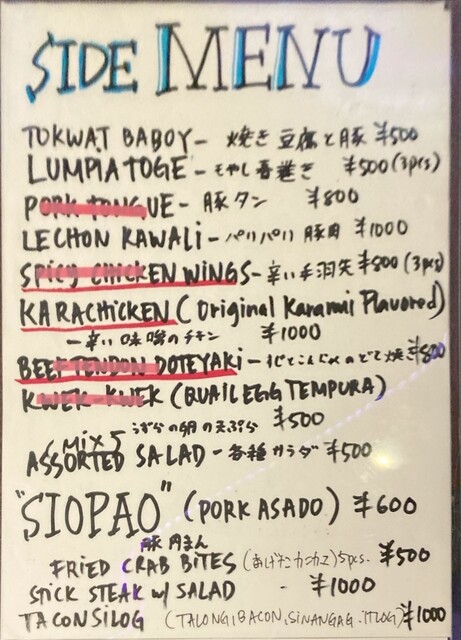 SIDE MENU
TOKWAT BABOY - 焼き豆腐と豚 ¥500
LUMPIA TOGE - もやし春巻き ¥500 (3pcs)
PORK TONGUE - 豚タン ¥800
LECHON KAWALi - パリパリ豚肉 ¥1000
SPICY CHICKEN WINGS - 辛い手羽先 ¥800 (3pcs)
KARACHiCKEN (Original Karami Flavored)
- 辛い味噌のチキン ¥1000
BEEF TENDON DOTEYAKi - すじとこんにゃくのどて焼 ¥800
KWEK-KWEK (QUAIL EGG TEMPURA)
うずらの卵の天ぷら ¥500
MIX 5
ASSORTED SALAD - 各種サラダ ¥500
"SIOPAO" (PORK ASADO) ¥600
豚肉まん
FRIED CRAB BITES (あげたカニカマ) 5pcs. ¥500
STICK STEAK w/ SALAD - ¥1000
TACONSILOG (TALONG, BACON, SINANGAG, ITLOG) ¥1000